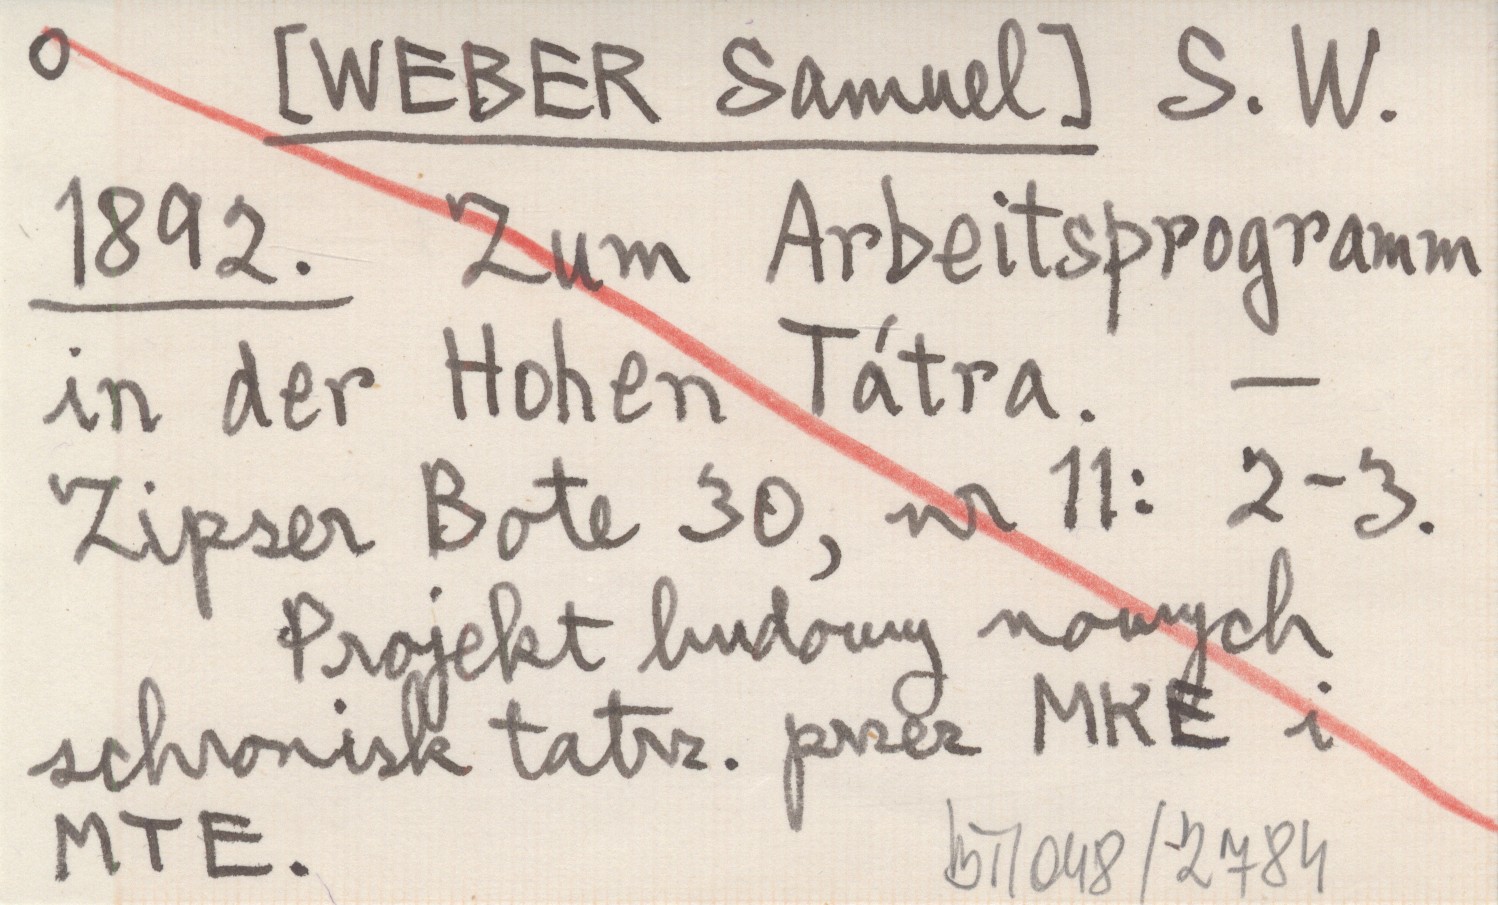 o [WEBER Samuel] S. W.
1892. Zum Arbeitsprogramm
in der Hohen Tátra. —
Zipser Bote 30, nr 11: 2-3.
Projekt budowy nowych
schronisk tatrz. przez MKE i
MTE.
BT/048/2784